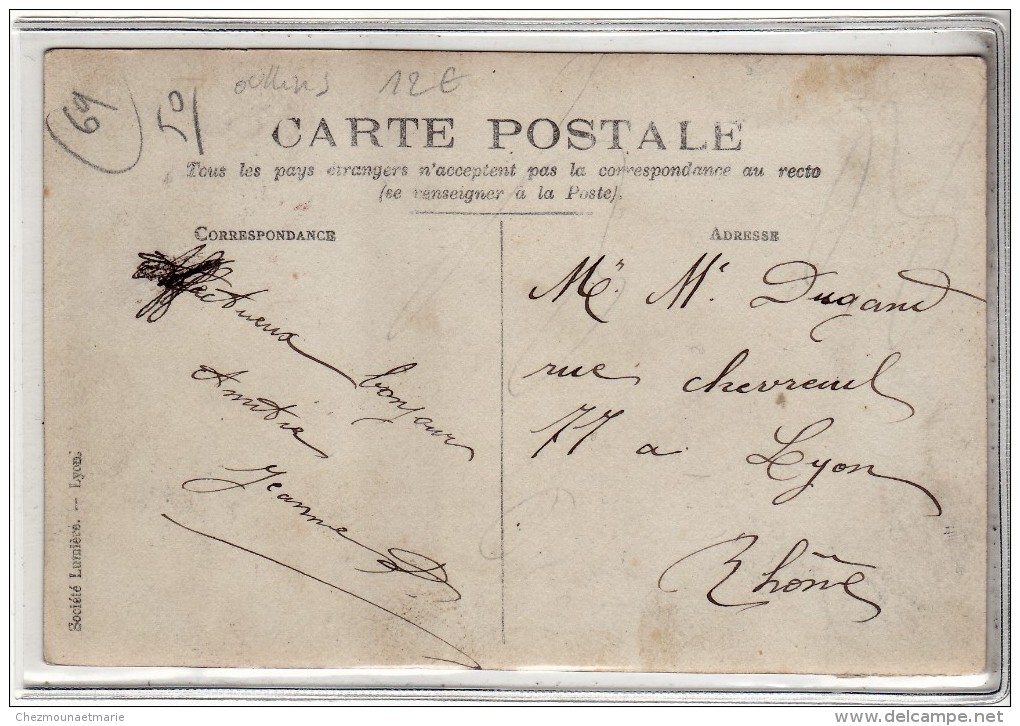 69
51
oullins 12€
CARTE POSTALE
Tous les pays étrangers n'acceptent pas la correspondance au recto
(se renseigner à la Poste).
CORRESPONDANCE
Affectueux bonjour
Amitié
Jeanne D
ADRESSE
Mr Mr Dugand
rue chevreuil
77 a Lyon
Rhône
Société Lumière. — Lyon.
Chezmounaetmarie
www.delcampe.net